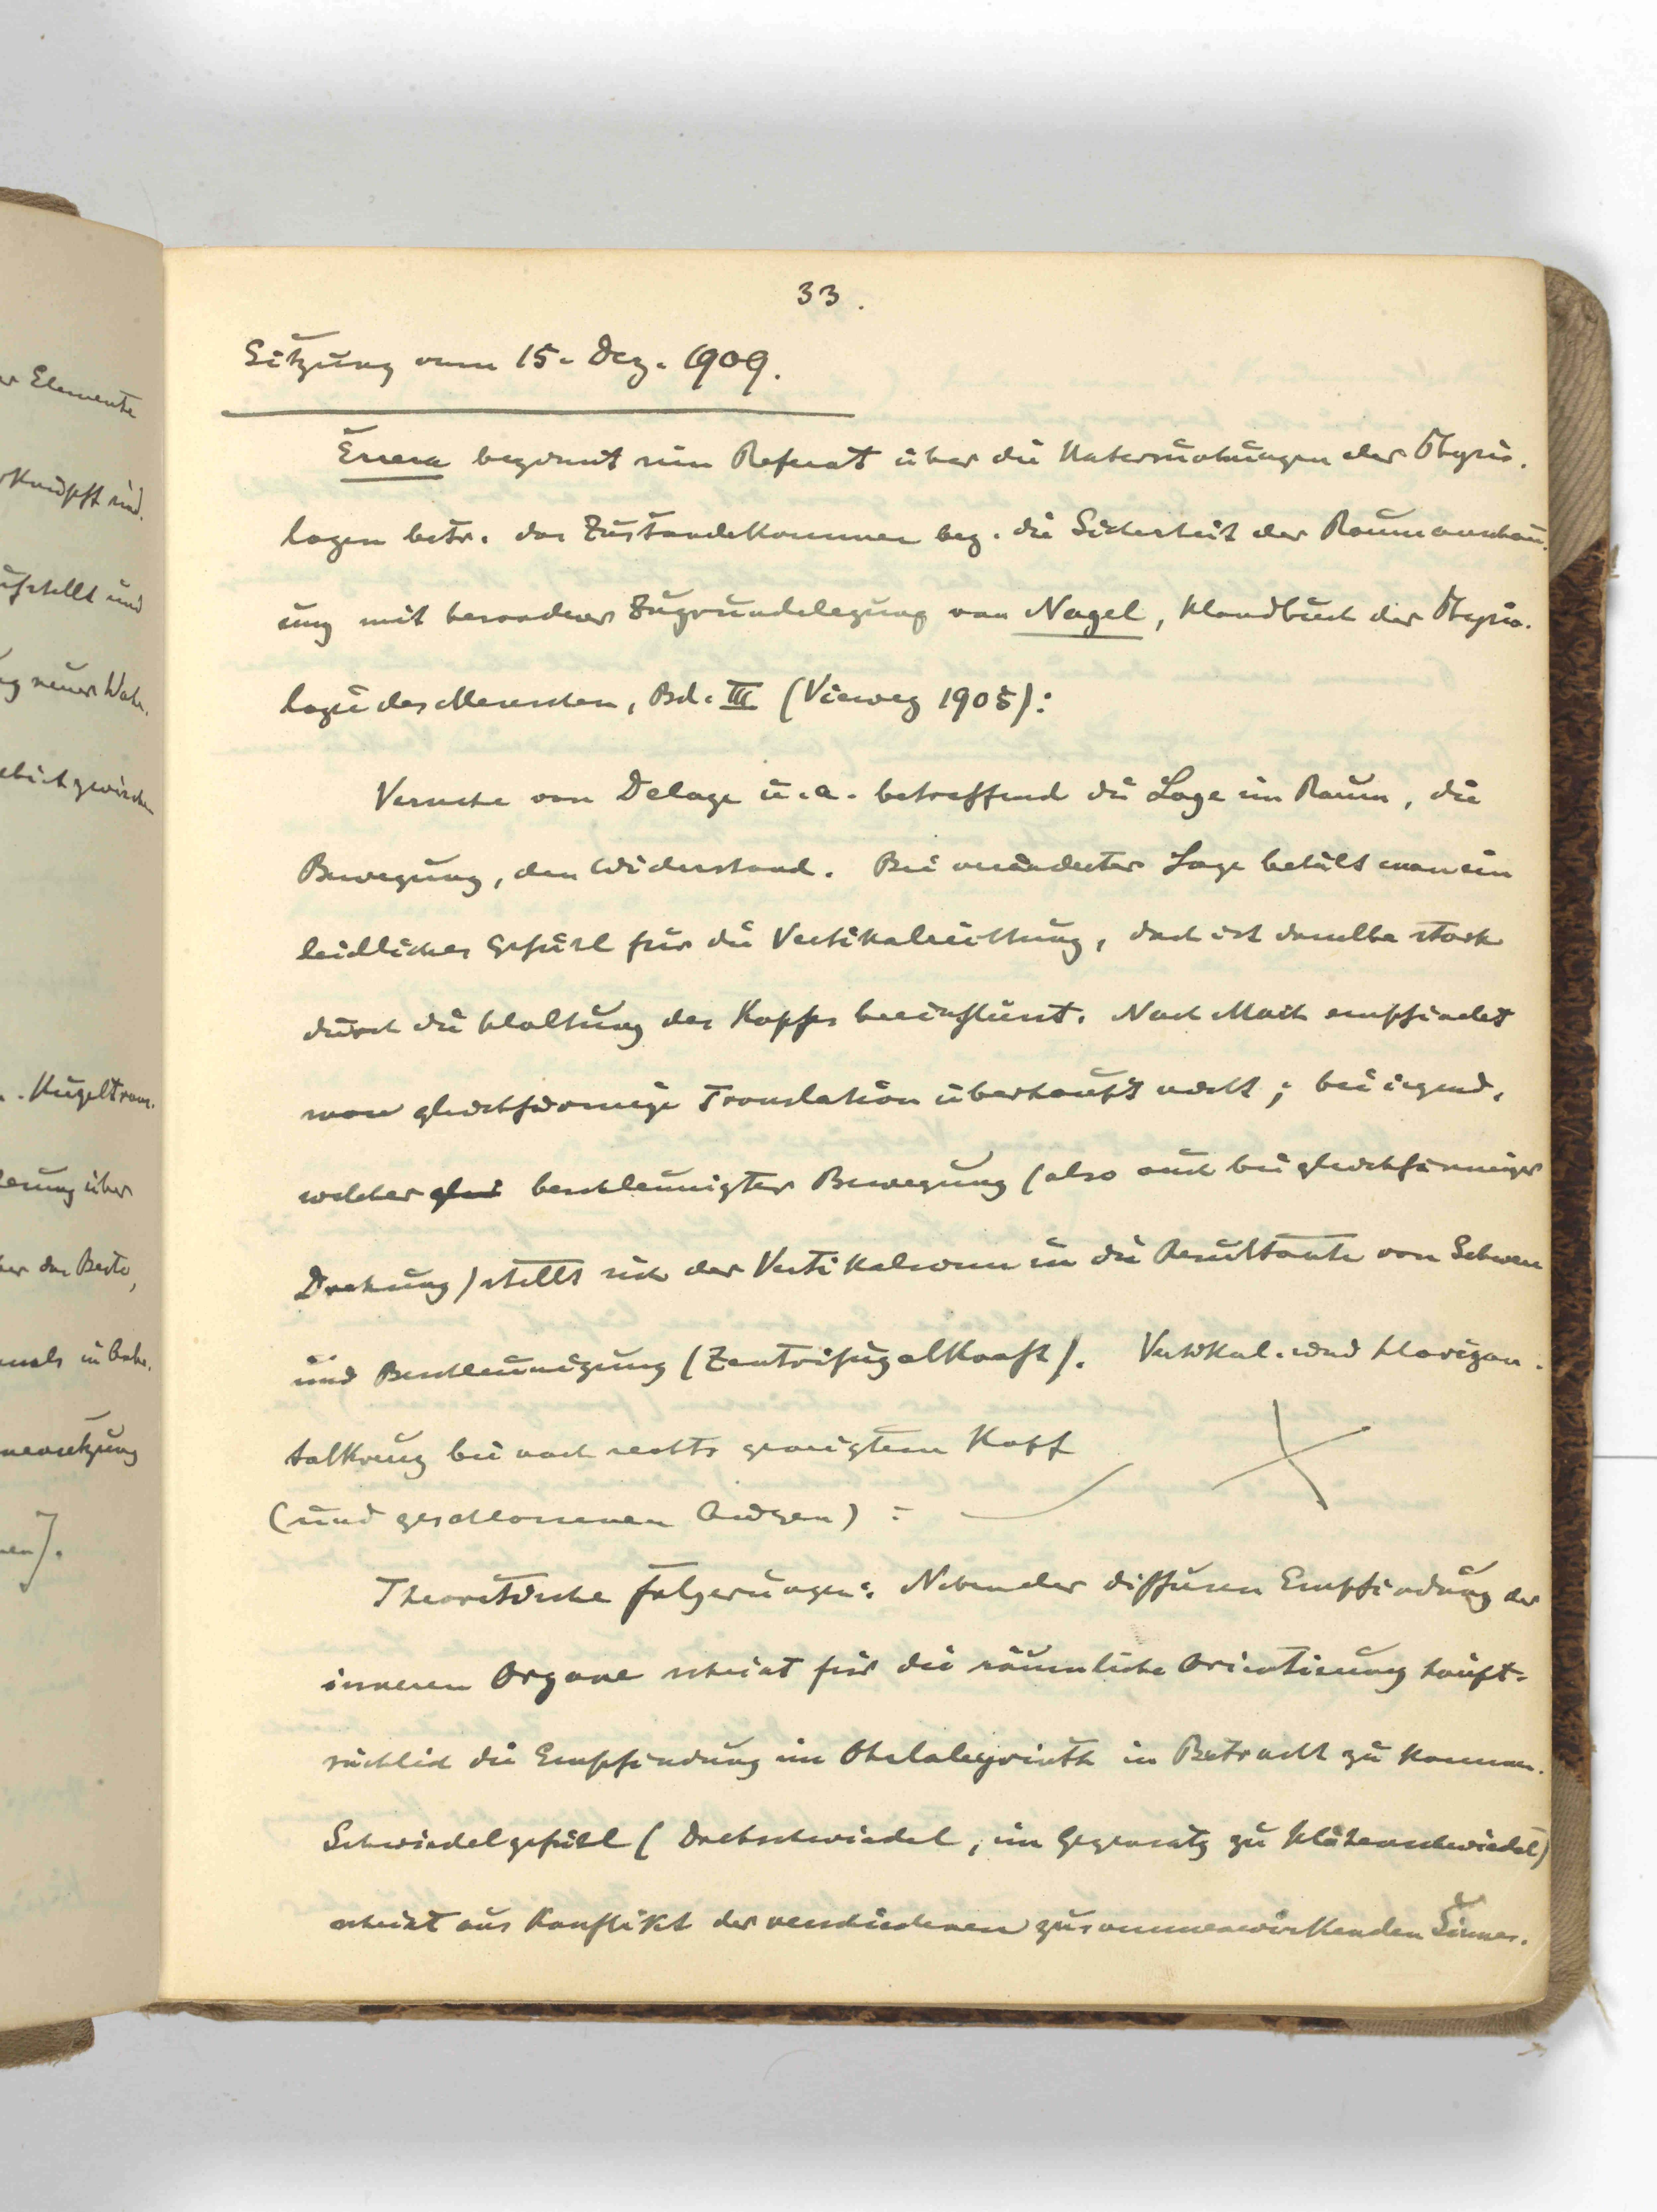 er Elemente
rknüpft sind.
ufstellt und
ng neuer Wahr-
. Kugeltrans-
erung über
mals in Bahn-
mensetzung
nen].
33.
Sitzung vom 15. Dez. 1909.
Errera beginnt sein Referat über die Untersuchungen der Physio-
logen betr. das Zustandekommen bez. die Sicherheit der Raumanschau-
ung mit besonderer Zugrundelegung von Nagel, Handbuch der Physio-
logie des Menschen, Bd. III (Vieweg 1905):
Versuche von Delage u. a. betreffend die Lage im Raum, die
Bewegung, den Widerstand. Bei veränderter Lage behält man ein
leidliches Gefühl für die Vertikalrichtung, doch ist dasselbe stark
durch die Haltung des Kopfes beeinflusst. Nach Mach empfindet
man gleichförmige Translation überhaupt nicht; bei irgend-
welcher glei beschleunigter Bewegung (also auch bei gleichförmiger
Drehung) stellt sich der Vertikalsinn in die Resultante von Schwere
und Beschleunigung (Zentrifugalkraft). Vertikal- und Horizon-
talkreuz bei nach rechts geneigtem Kopf
(und geschlossenen Augen) :
Theoretische Folgerungen: Neben der diffusen Empfindung der
inneren Organe scheint für die räumliche Orientierung haupt-
sächlich die Empfindung im Ohrlabyrinth in Betracht zu kommen.
Schwindelgefühl (Drehschwindel, im Gegensatz zu Höhenschwindel)
scheint aus Konflikt der verschiedenen zusammenwirkenden Sinnes-